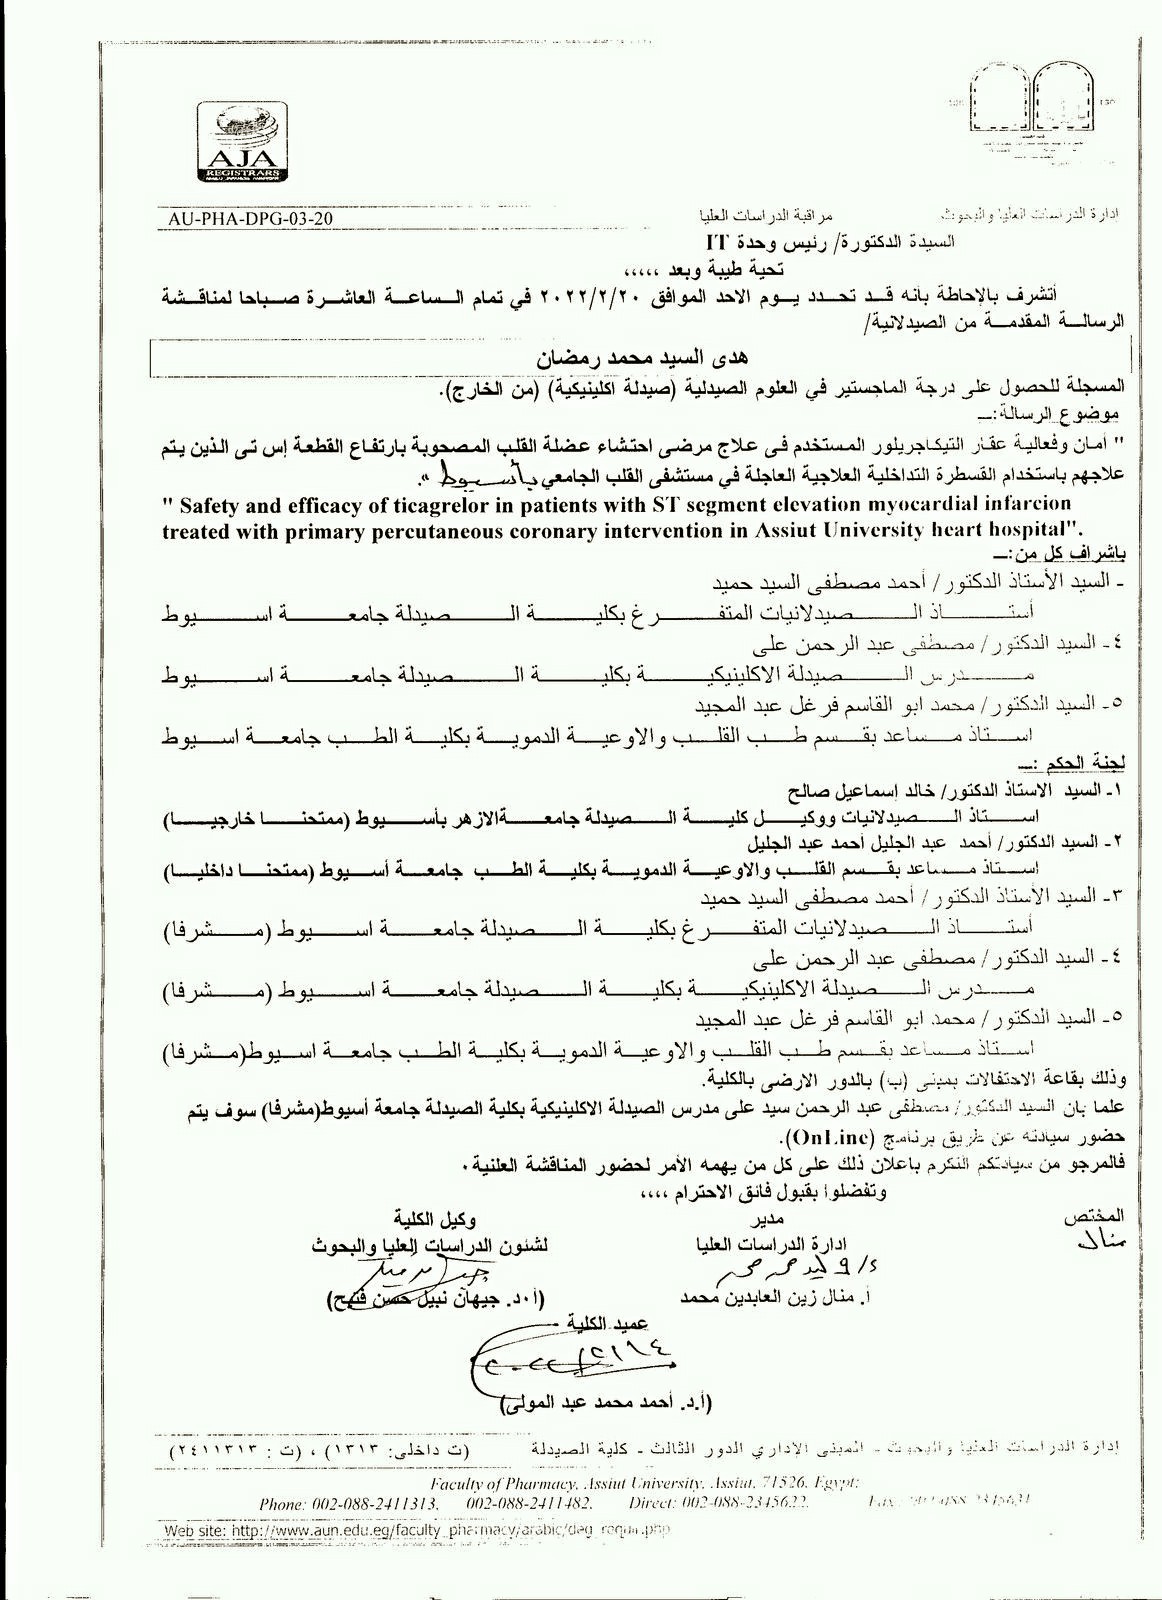 AJA
REGISTRARS
AU-PHA-DPG-03-20
مراقبة الدراسات العليا
إدارة الدراسات العليا والبحوث
السيدة الدكتورة/ رئيس وحدة IT
تحية طيبة وبعد ،،،،،
أتشرف بالإحاطة بأنه قد تحدد يوم الاحد الموافق ٢٠٢٢/٢/٢٠ في تمام الساعة العاشرة صباحا لمناقشة
الرسالة المقدمة من الصيدلانية/
هدى السيد محمد رمضان
المسجلة للحصول على درجة الماجستير في العلوم الصيدلية (صيدلة اكلينيكية) (من الخارج).
موضوع الرسالة:ـ
" أمان وفعالية عقار التيكاجريلور المستخدم فى علاج مرضى احتشاء عضلة القلب المصحوبة بارتفاع القطعة إس تى الذين يتم
علاجهم باستخدام القسطرة التداخلية العلاجية العاجلة في مستشفى القلب الجامعي بأسيوط ".
" Safety and efficacy of ticagrelor in patients with ST segment elevation myocardial infarcion
treated with primary percutaneous coronary intervention in Assiut University heart hospital".
باشراف كل من:ـ
- السيد الأستاذ الدكتور/ أحمد مصطفى السيد حميد
أستاذ الصيدلانيات المتفرغ بكلية الصيدلة جامعة اسيوط
٤- السيد الدكتور/ مصطفى عبد الرحمن على
مدرس الصيدلة الاكلينيكية بكلية الصيدلة جامعة اسيوط
٥- السيد الدكتور/ محمد ابو القاسم فرغل عبد المجيد
استاذ مساعد بقسم طب القلب والاوعية الدموية بكلية الطب جامعة اسيوط
لجنة الحكم :ـ
١- السيد الاستاذ الدكتور/ خالد إسماعيل صالح
استاذ الصيدلانيات ووكيل كلية الصيدلة جامعة الازهر بأسيوط (ممتحنا خارجيا)
٢- السيد الدكتور/ أحمد عبد الجليل أحمد عبد الجليل
استاذ مساعد بقسم القلب والاوعية الدموية بكلية الطب جامعة أسيوط (ممتحنا داخليا)
٣- السيد الأستاذ الدكتور/ أحمد مصطفى السيد حميد
أستاذ الصيدلانيات المتفرغ بكلية الصيدلة جامعة اسيوط (مشرفا)
٤- السيد الدكتور/ مصطفى عبد الرحمن على
مدرس الصيدلة الاكلينيكية بكلية الصيدلة جامعة اسيوط (مشرفا)
٥- السيد الدكتور/ محمد ابو القاسم فرغل عبد المجيد
استاذ مساعد بقسم طب القلب والاوعية الدموية بكلية الطب جامعة اسيوط(مشرفا)
وذلك بقاعة الاحتفالات بمبنى (ب) بالدور الارضى بالكلية.
علما بان السيد الدكتور/ مصطفى عبد الرحمن سيد على مدرس الصيدلة الاكلينيكية بكلية الصيدلة جامعة أسيوط(مشرفا) سوف يتم
حضور سيادته عن طريق برنامج (OnLine).
فالمرجو من سيادتكم التكرم باعلان ذلك على كل من يهمه الأمر لحضور المناقشة العلنية.
وتفضلوا بقبول فائق الاحترام ،،،،
المختص
منال
مدير
ادارة الدراسات العليا
أ. منال زين العابدين محمد
وكيل الكلية
لشئون الدراسات العليا والبحوث
(أ.د. جيهان نبيل حسن فتيح)
عميد الكلية
(أ.د. أحمد محمد عبد المولى)
إدارة الدراسات العليا والبحوث - المبنى الإداري الدور الثالث - كلية الصيدلة (ت داخلى: ١٣١٣) ، (ت : ٢٤١١٣١٣)
Faculty of Pharmacy, Assiut University, Assiut, 71526, Egypt:
Phone: 002-088-2411313, 002-088-2411482, Direct: 002-088-2345622, Fax: 002-088-2345631
Web site: http://www.aun.edu.eg/faculty_pharmacy/arabic/deg_requn.php